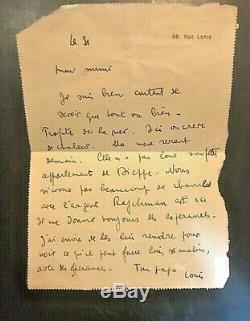 98 RUE LEPIC
Le 31
mon mimi
Je suis bien content de
savoir que tout va bien -
Profite de la mer. Ici on crève
de chaleur. Ma mère revient
demain. Elle n'a pas loué son petit
appartement de Dieppe. Nous
n'avons pas beaucoup de chance
avec l'argent. Rajchman est ici
Il me donne toujours des espérances.
J'ai envie de les lui rendre pour
voir ce qu'il peut faire lui, si malin,
avec des espérances - Ton papa Louis